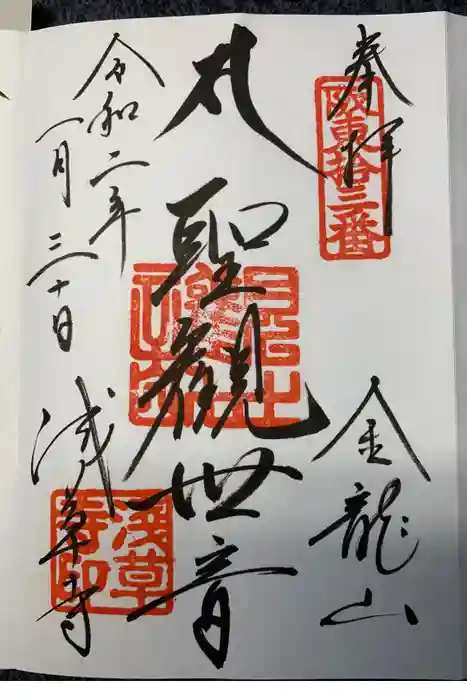 奉拝
坂東拾三番
金龍山
聖観世音
令和二年
一月三十日
浅草寺
浅草
寺印